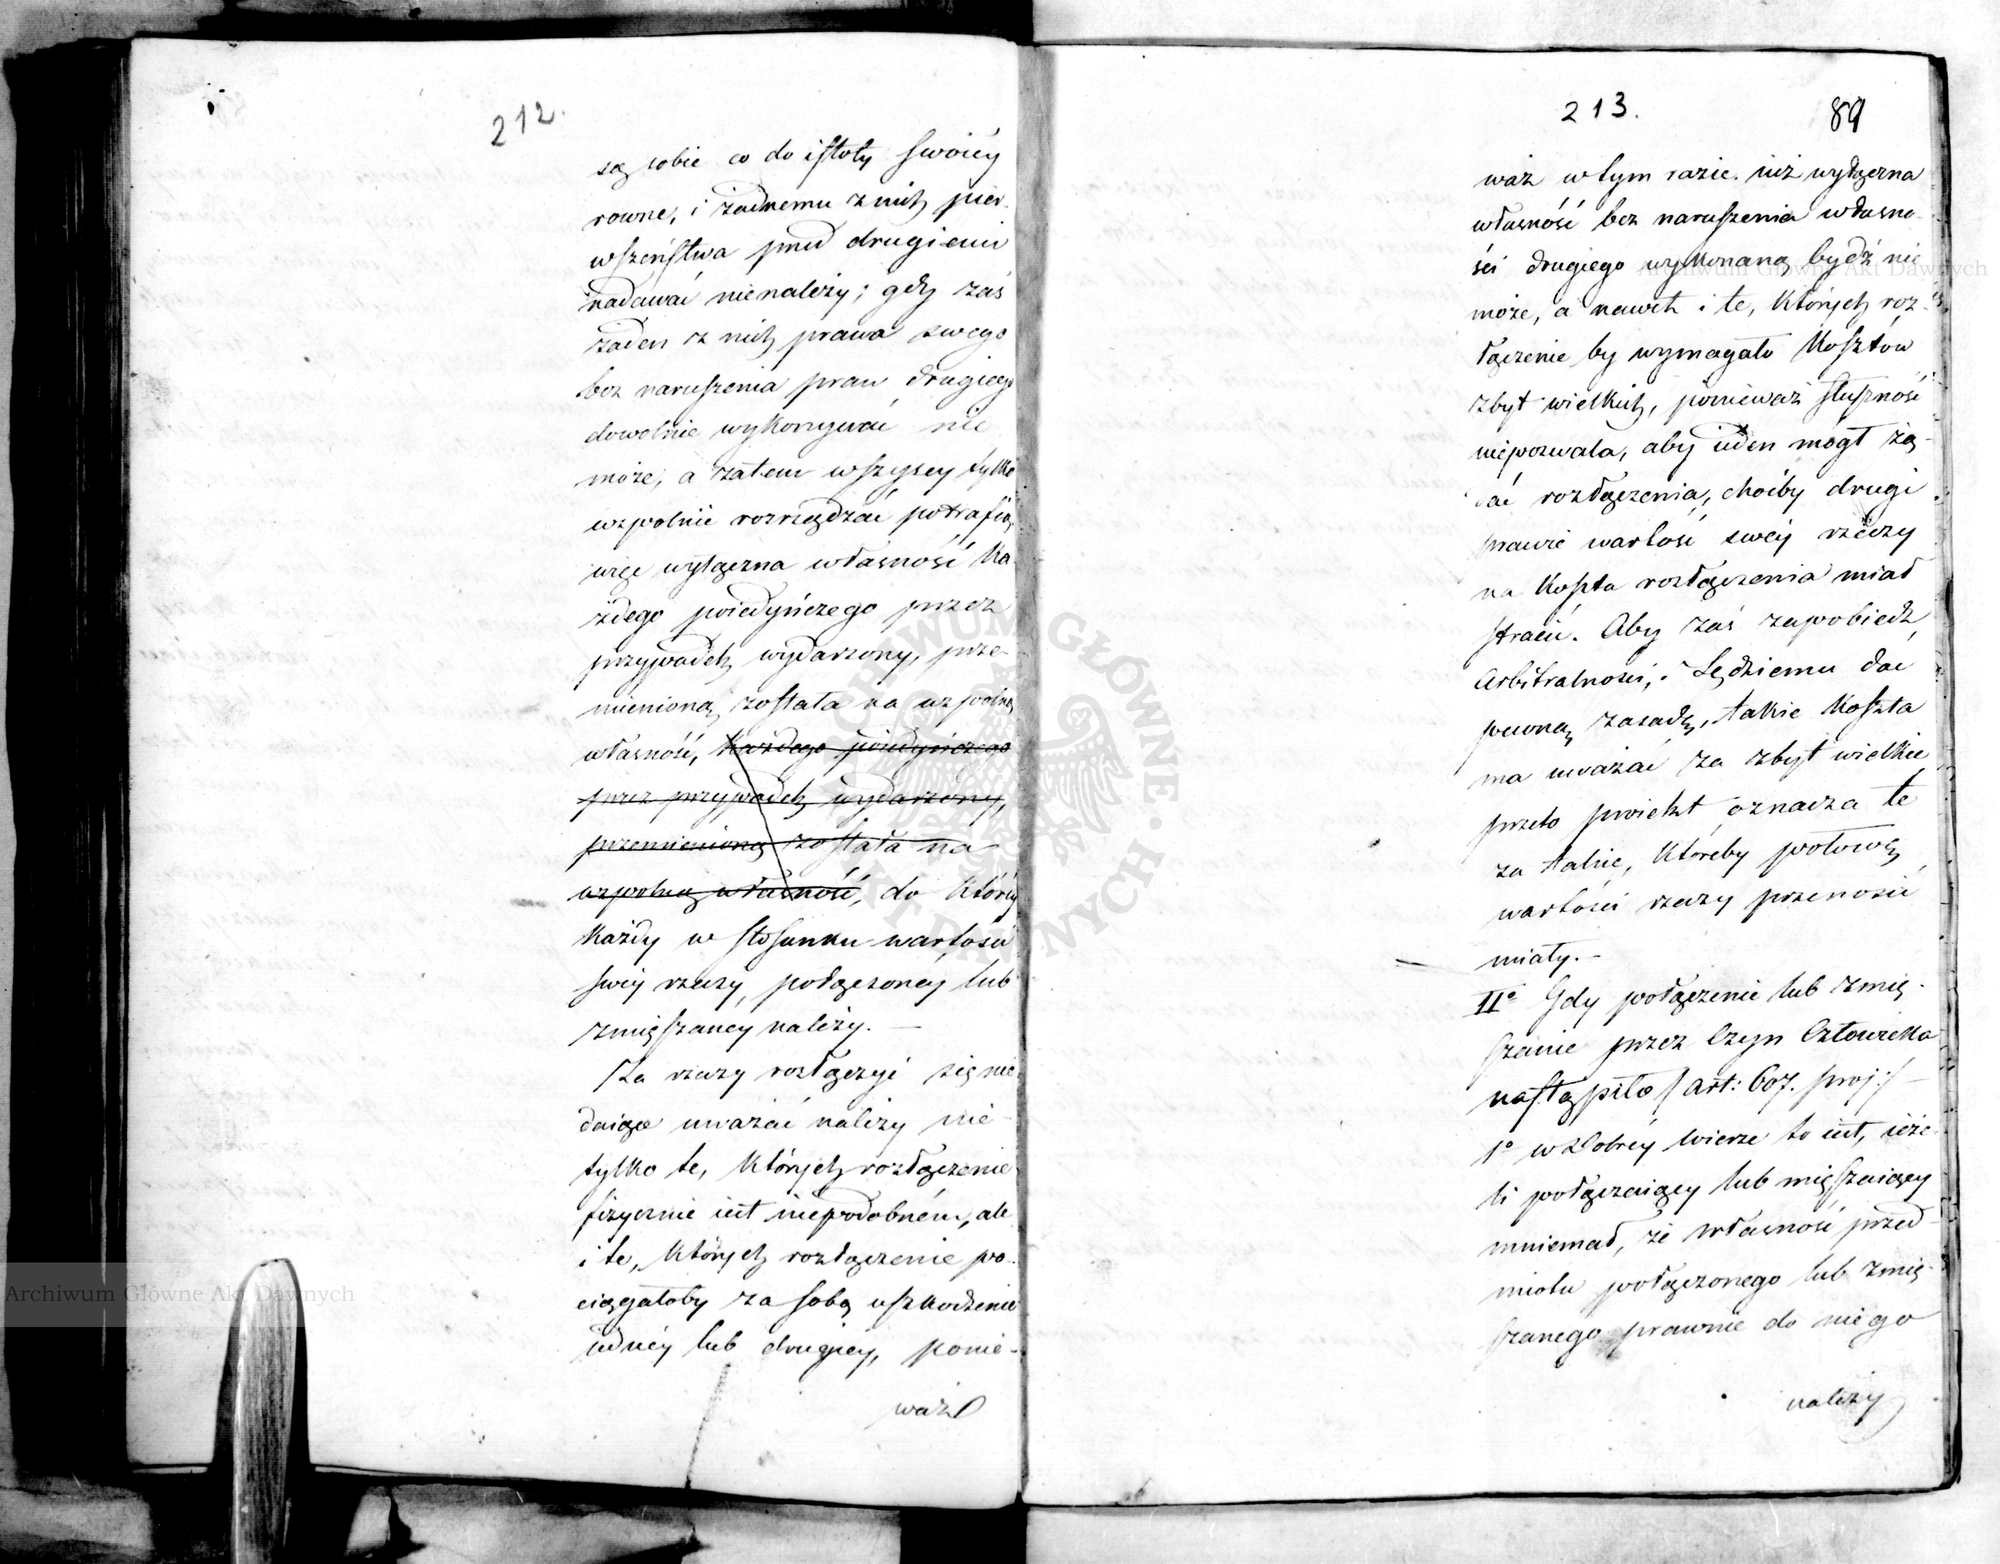 212.
są sobie co do istoty swoiéy
rowne, i żadnemu z nich pier-
wszeństwa przed drugiemi
nadawać nienależy; gdy zaś
żaden z nich prawa swego
bez naruszenia praw drugiego
dowolnie wykonywać nie
może, a zatem wszyscy tylko
wspolnie rozrządzać potrafią,
więc wyłączna własność ka
żdego poiedyńczego przez
przypadek wydarzony, prze-
mienioną została na wspolną
własność, każdego poiedyńczego
przez przypadek wydarzony,
przemienioną została na
wspolną własność, do któréy
każdy w stosunku wartości
swéy rzeczy, połączonéy lub
zmięszanéy należy. —
Za rzeczy rozłączyć się nie
daiące uważać należy nie-
tylko te, których rozłączenie
fizycznie iest niepodobném, ale
i te, których rozłączenie po-
ciągałoby za sobą uszkodzenie
iednéy lub drugiéy, ponie-
waż
213.
89
waż w tym razie iuż wyłączna
własność bez naruszenia własno-
ści drugiego wykonaną bydź nie
może, a nawet i te, których roz-
łączenie by wymagało kosztów
zbyt wielkich, ponieważ słuszność
niepozwala, aby ieden mógł żą-
dać rozłączenia, choćby drugi
prawie wartość swéy rzeczy
na koszta rozłączenia miał
stracić. Aby zaś zapobiedz
Arbitralności, i Sędziemu dać
pewną zasadę, takie koszta
ma uważać za zbyt wielkie
przeto proiekt oznacza te
za takie, któreby połowę
wartości rzeczy przenosić
miały. —
II° Gdy połączenie lub zmię-
szanie przez Czyn Człowieka
nastąpiło /art: 607. proj:/ —
1° w dobréy wierze to iest, ieże-
li połączaiący lub mięszaiący
mniemał, że własność przed-
miotu połączonego lub zmię-
szanego prawnie do niego
należy